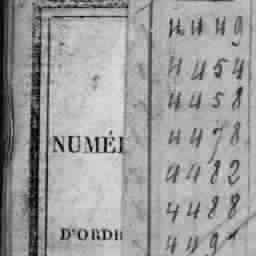 NUMÉ
D'ORD
4449
4454
4458
4478
4482
4488